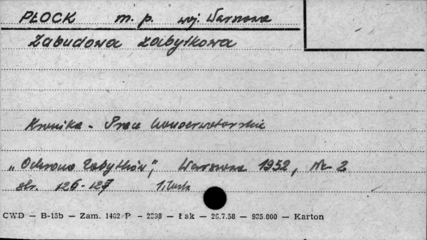 PŁOCK m. p. woj. Warszawa
Zabudowa zabytkowa
Kronika - Prace konserwatorskie
"Ochrona Zabytków", Warszawa 1952, Nr 2
str. 126-127
CWD — B-15b — Zam. 1402/P — — f ak — 26.7.58 — 935.000 — Karton